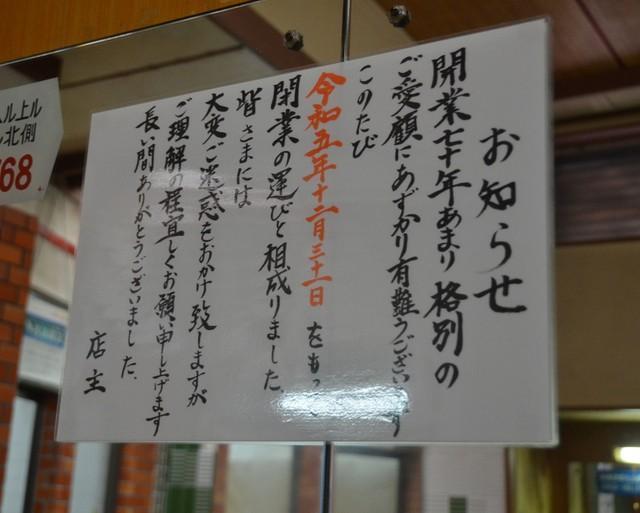 お知らせ
開業七十年あまり格別の
ご愛顧にあずかり有難うございます
このたび
令和五年十二月三十一日をもって
閉業の運びと相成りました。
皆さまには
大変ご迷惑をおかけ致しますが
ご理解の程宜しくお願い申し上げます
長い間ありがとうございました。
店主
ル上ル
北側
68